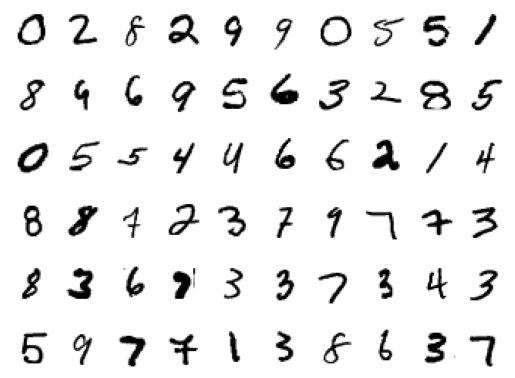 0 2 8 2 9 9 0 5 5 1
8 9 6 9 5 6 3 2 8 5
0 5 5 4 4 6 6 2 1 4
8 8 7 2 3 7 9 7 7 3
8 3 6 7 3 3 7 3 4 3
5 9 7 7 1 3 8 6 3 7